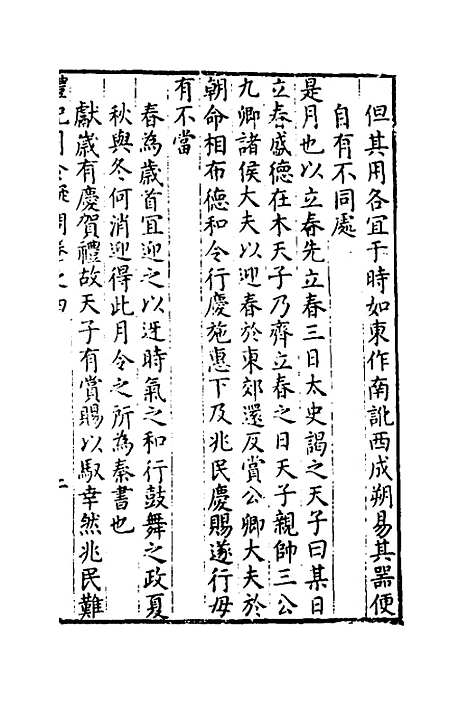 但其用各宜于時如東作南訛西成朔易其器便
自有不同處
是月也以立春先立春三日太史謁之天子曰某日
立春盛德在木天子乃齊立春之日天子親帥三公
九卿諸侯大夫以迎春於東郊還反賞公卿大夫於
朝命相布德和令行慶施惠下及兆民慶賜遂行毋
有不當
春為歲首宜迎之以迓時氣之和行鼓舞之政夏
秋與冬何消迎得此月令之所為秦書也
獻歲有慶賀禮故天子有賞賜以馭幸然兆民難
禮記月令疑問卷之四